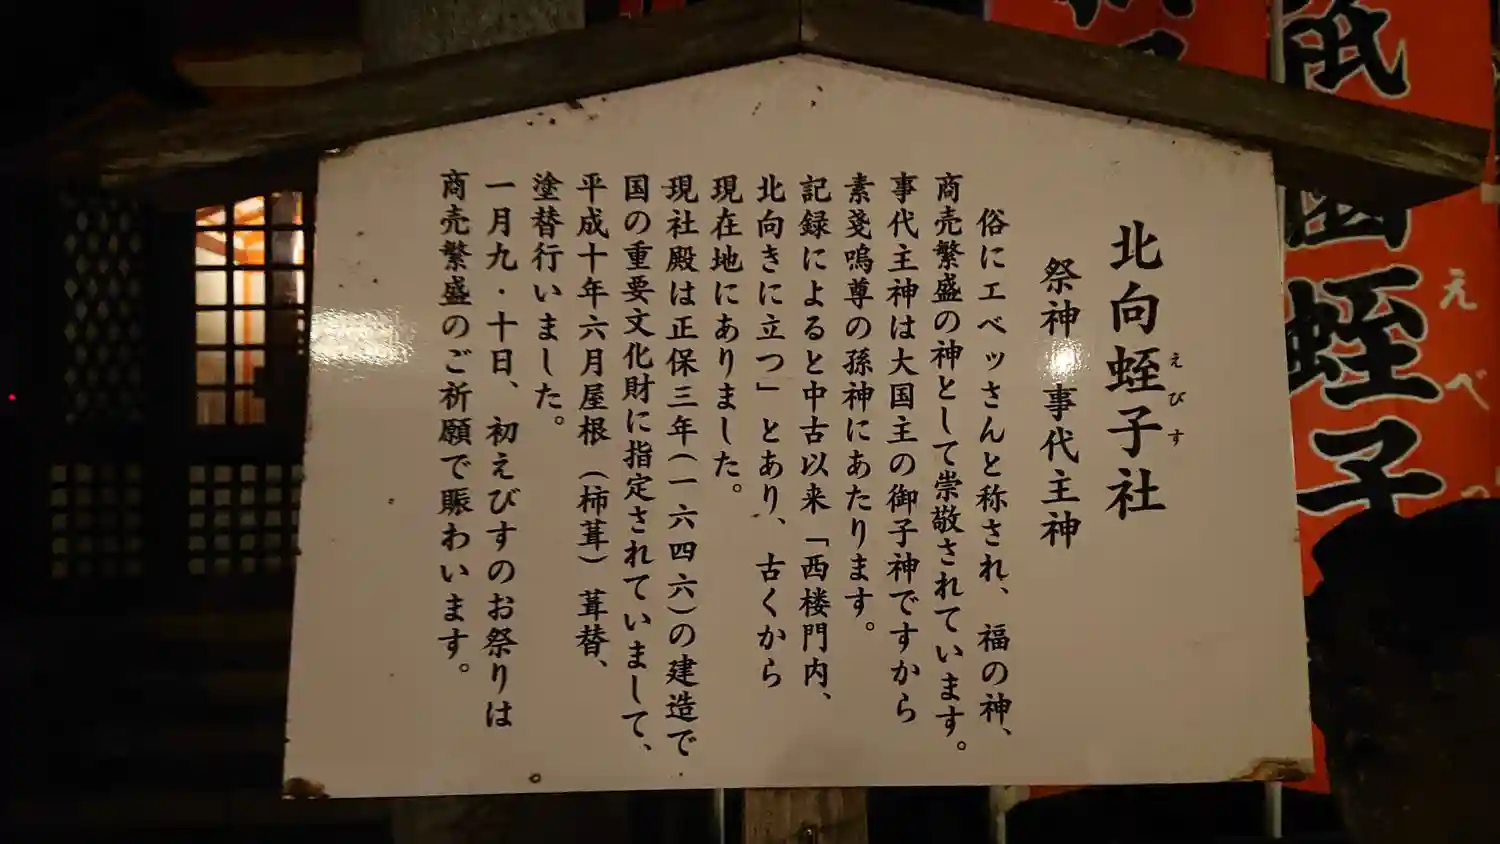 北向蛭子社
えびす
祭神 事代主神
俗にエベッさんと称され、福の神、
商売繁盛の神として崇敬されています。
事代主神は大国主の御子神ですから
素戔嗚尊の孫神にあたります。
記録によると中古以来「西楼門内、
北向きに立つ」とあり、古くから
現在地にありました。
現社殿は正保三年(一六四六)の建造で
国の重要文化財に指定されていまして、
平成十年六月屋根(柿葺)葺替、
塗替行いました。
一月九・十日、初えびすのお祭りは
商売繁盛のご祈願で賑わいます。
祇園蛭子
えべっ